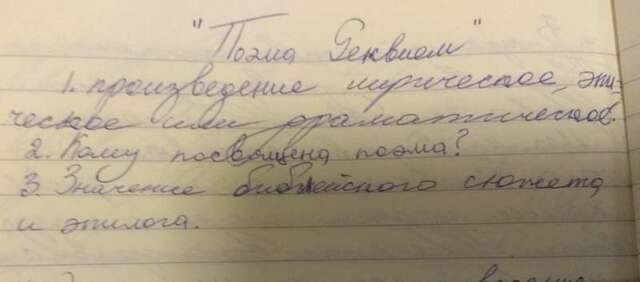 "Поэма Реквием"
1. произведение лирическое, эпи-
ческое или драматическое.
2. Кому посвящена поэма?
3. Значение библейского сюжета
и эпилога.